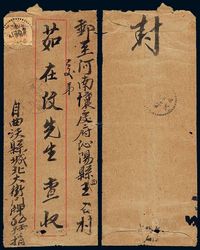 郵至河南懷慶府沁陽縣王召村
交弟
茹在位先生查收
自曲沃縣城北大街
封